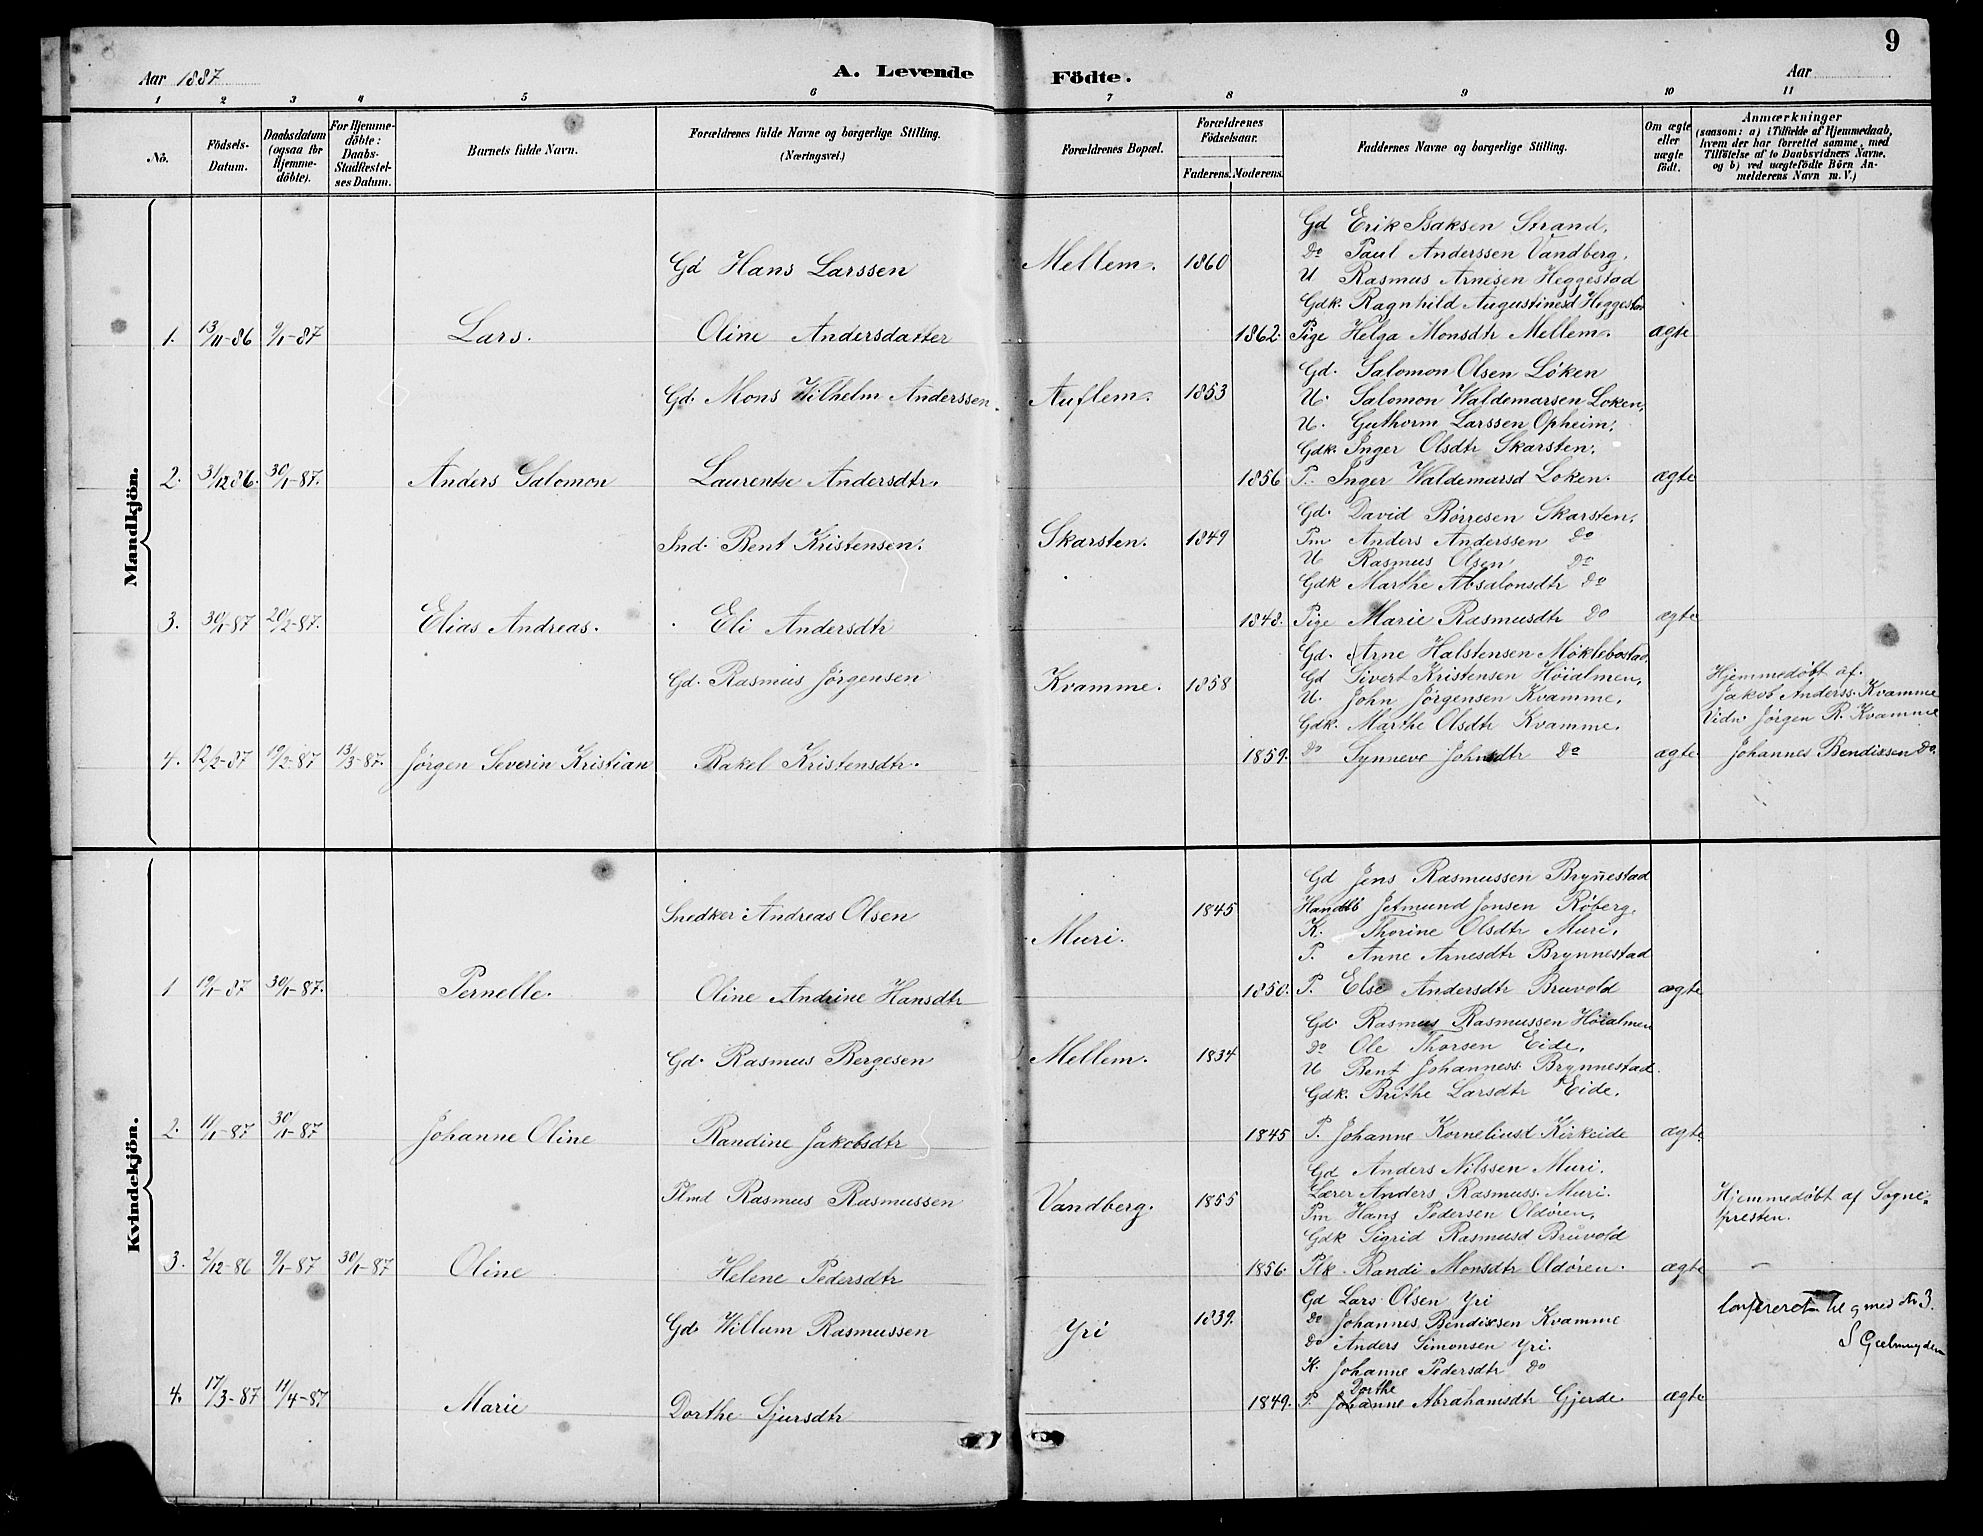 9
Aar 1887 A. Levende Födte. Aar
1 2 3 4 5 6 7 8 9 10 11
No.
Födsels-Datum.
Daabsdatum (ogsaa for Hjemme-döbte).
For Hjemme-döbte: Daabs-Stadfæstel-ses Datum.
Barnets fulde Navn.
Forældrenes fulde Navne og borgerlige Stilling.
(Næringsvei.)
Forældrenes Bopæl.
Forældrenes Födselsaar.
Faderens. Moderens.
Faddernes Navne og borgerlige Stilling.
Om ægte eller uægte födt.
Anmærkninger
(saasom: a) i Tilfælde af Hjemmedaab,
hvem der har forrettet samme, med
Tilföielse af to Daabsvidners Navne,
og b) ved uægtefödte Börn An-
melderens Navn m. V.)
Mandkjön.
Gd Erik Isaksen Strand.
Gd Hans Larssen Mellem. 1860 Do Paul Anderssen Vandberg.
U Rasmus Arnesen Heggestad
Gdk. Ragnhild Augustinesd Heggestad
1. 13/11-86 9/1-87 Lars. Oline Andersdatter 1862. Pige Helga Monsdtr Mellem. ægte
Gd. Salomon Olsen Löken
Gd. Mons Wilhelm Anderssen. Auflem. 1853 U. Salomon Waldemarsen Loken.
U. Guthorm Larssen Opheim.
Gdk. Inger Olsdtr Skarsten.
2. 31/12 86. 30/1-87. Anders Salomon Laurentse Andersdtr. 1856 P. Inger Waldemarsd Loken. ægte
Gd. David Börresen Skarsten.
Ind. Bent Kristensen. Skarsten. 1849 Pm Anders Anderssen Do
U Rasmus Olsen Do
Gdk Marthe Absalonsdtr Do
3. 30/1-87 20/2-87. Elias Andreas. Eli Andersdtr 1848. Pige Marie Rasmusdtr Do ægte
Gd. Arne Halstensen Möklebostad
Gd. Rasmus Jörgensen Kvamme. 1858 Gd Sivert Kristensen Höialmen. Hjemmedöbt af.
U. John Jörgensen Kvamme. Jakob Anderss. Kvamme
Gdk. Marthe Olsdtr Kvamme. Vidn Jörgen R. Kvamme
4. 12/2-87 19/2-87 13/3-87. Jörgen Severin Kristian Rakel Kristensdtr. 1859. Do Synneve Johnsdtr Do ægte Johannes Bendixsen Do.
Kvindekjön.
Gd Jens Rasmussen Brynestad
Snedker Andreas Olsen Muri. 1845 Jetmund Jonsen Röberg.
K. Thorine Olsdtr Muri.
P. Anne Arnesdtr Brynnestad
1 19/1-87 30/1-87. Pernelle. Oline Andrine Hansdtr 1850. P. Else Andersdtr Bruvold ægte
Gd. Rasmus Rasmussen Höialmen
Gd. Rasmus Bergesen Mellem. 1834 Do Ole Thorsen Eide.
U Bent Johanness. Brynnestad.
Gdk. Brithe Larsdtr Eide.
2. 11/1-87 30/1-87 Johanne Oline Randine Jakobsdtr 1845 P. Johanne Korneliusd Kirkeide ægte
Gd Anders Nilssen Muri.
Plmd Rasmus Rasmussen Vandberg. 1855 Lærer Anders Rasmuss. Muri. Hjemmedöbt af Sogne-
Pm Hans Pedersen Oldören. presten.
Gdk Sigrid Rasmusd Bruvold
3. 2/12-86 9/1-87 30/1-87 Oline Helene Pedersdtr 1856. Plk. Randi Monsdtr Oldören. ægte
Gd Lars Olsen Yri
Gd. Willum Rasmussen Yri 1839. Do Johannes Bendixsen Kvamme Confereret til g med No 3.
Do Anders Simonsen Yri. S Gjelmuyden
K. Johanne Pedersdtr Do
4. 17/3-87 11/4-87 Marie Dorthe Sjursdtr 1849. P. Johanne Dorthe Abrahamsdtr Gjerde ægte